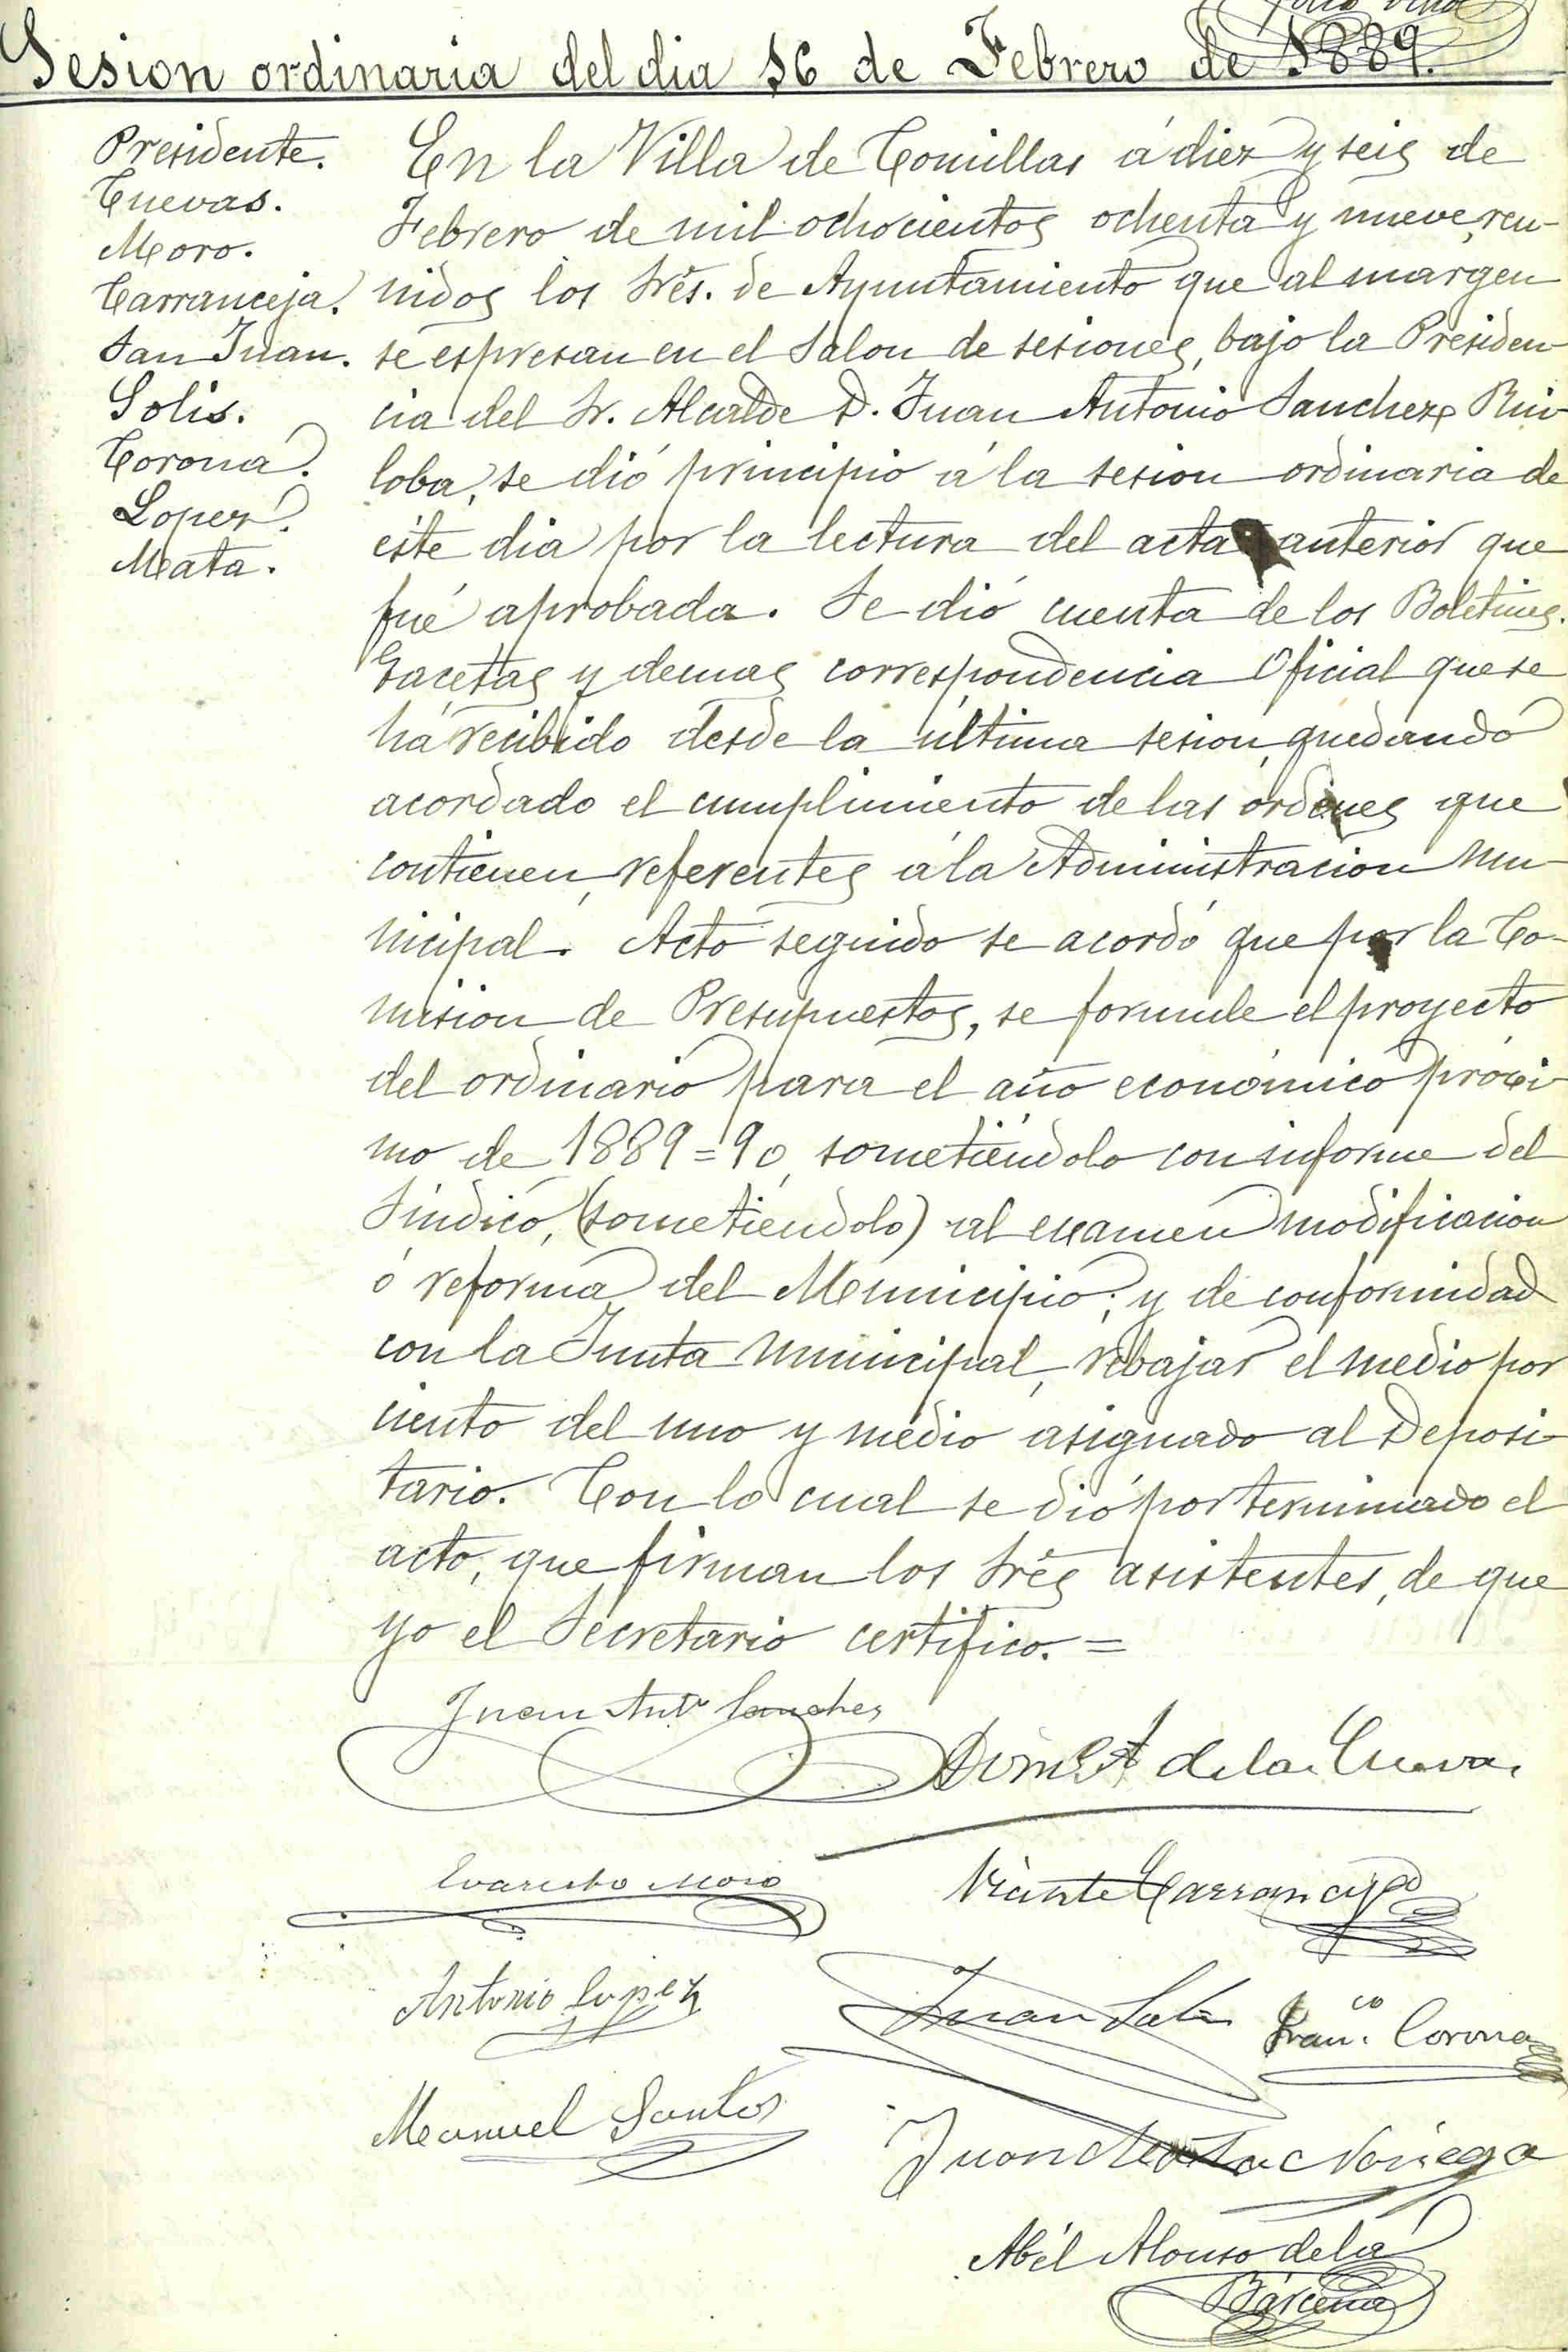 Sesion ordinaria del dia 16 de Febrero de 1889.
Presidente.
Cuevas.
Moro.
Carranceja.
San Juan.
Solis.
Corona.
Lopez.
Mata.
En la Villa de Comillas á diez y seis de
Febrero de mil ochocientos ochenta y nueve, reu-
nidos los Srés. de Ayuntamiento que al margen
se espresan en el Salon de sesiones, bajo la Presiden-
cia del Sr. Alcalde D. Juan Antonio Sanchez Rui-
loba, se dió principio á la sesion ordinaria de
este dia por la lectura del acta anterior que
fué aprobada. Se dió cuenta de los Boletines.
Gacetas y demas correspondencia Oficial que se
há recibido desde la última sesion, quedando
acordado el cumplimiento de las ordenes que
contienen, referentes á la Administracion Mu-
nicipal. Acto seguido se acordó que por la Co-
mision de Presupuestos, se formule el proyecto
del ordinario para el año económico próxi-
mo de 1889=90, sometiéndolo con informe del
Sindico, (sometiéndolo) al examen modificacion
ó reforma del Municipio; y de conformidad
con la Junta Municipal, rebajar el medio por
ciento del uno y medio asignado al Deposi-
tario. Con lo cual se dió por terminado el
acto, que firman los Srés asistentes, de que
yo el Secretario certifico. =
Juan Antº Sanchez
de la Cueva
Evaristo Moro
Vicente Carranceja
Antonio Lopez
Juan Solis
Franco. Corona
Manuel Santos
Juan Mata Noriega
Abél Alonso de la
Bárcena